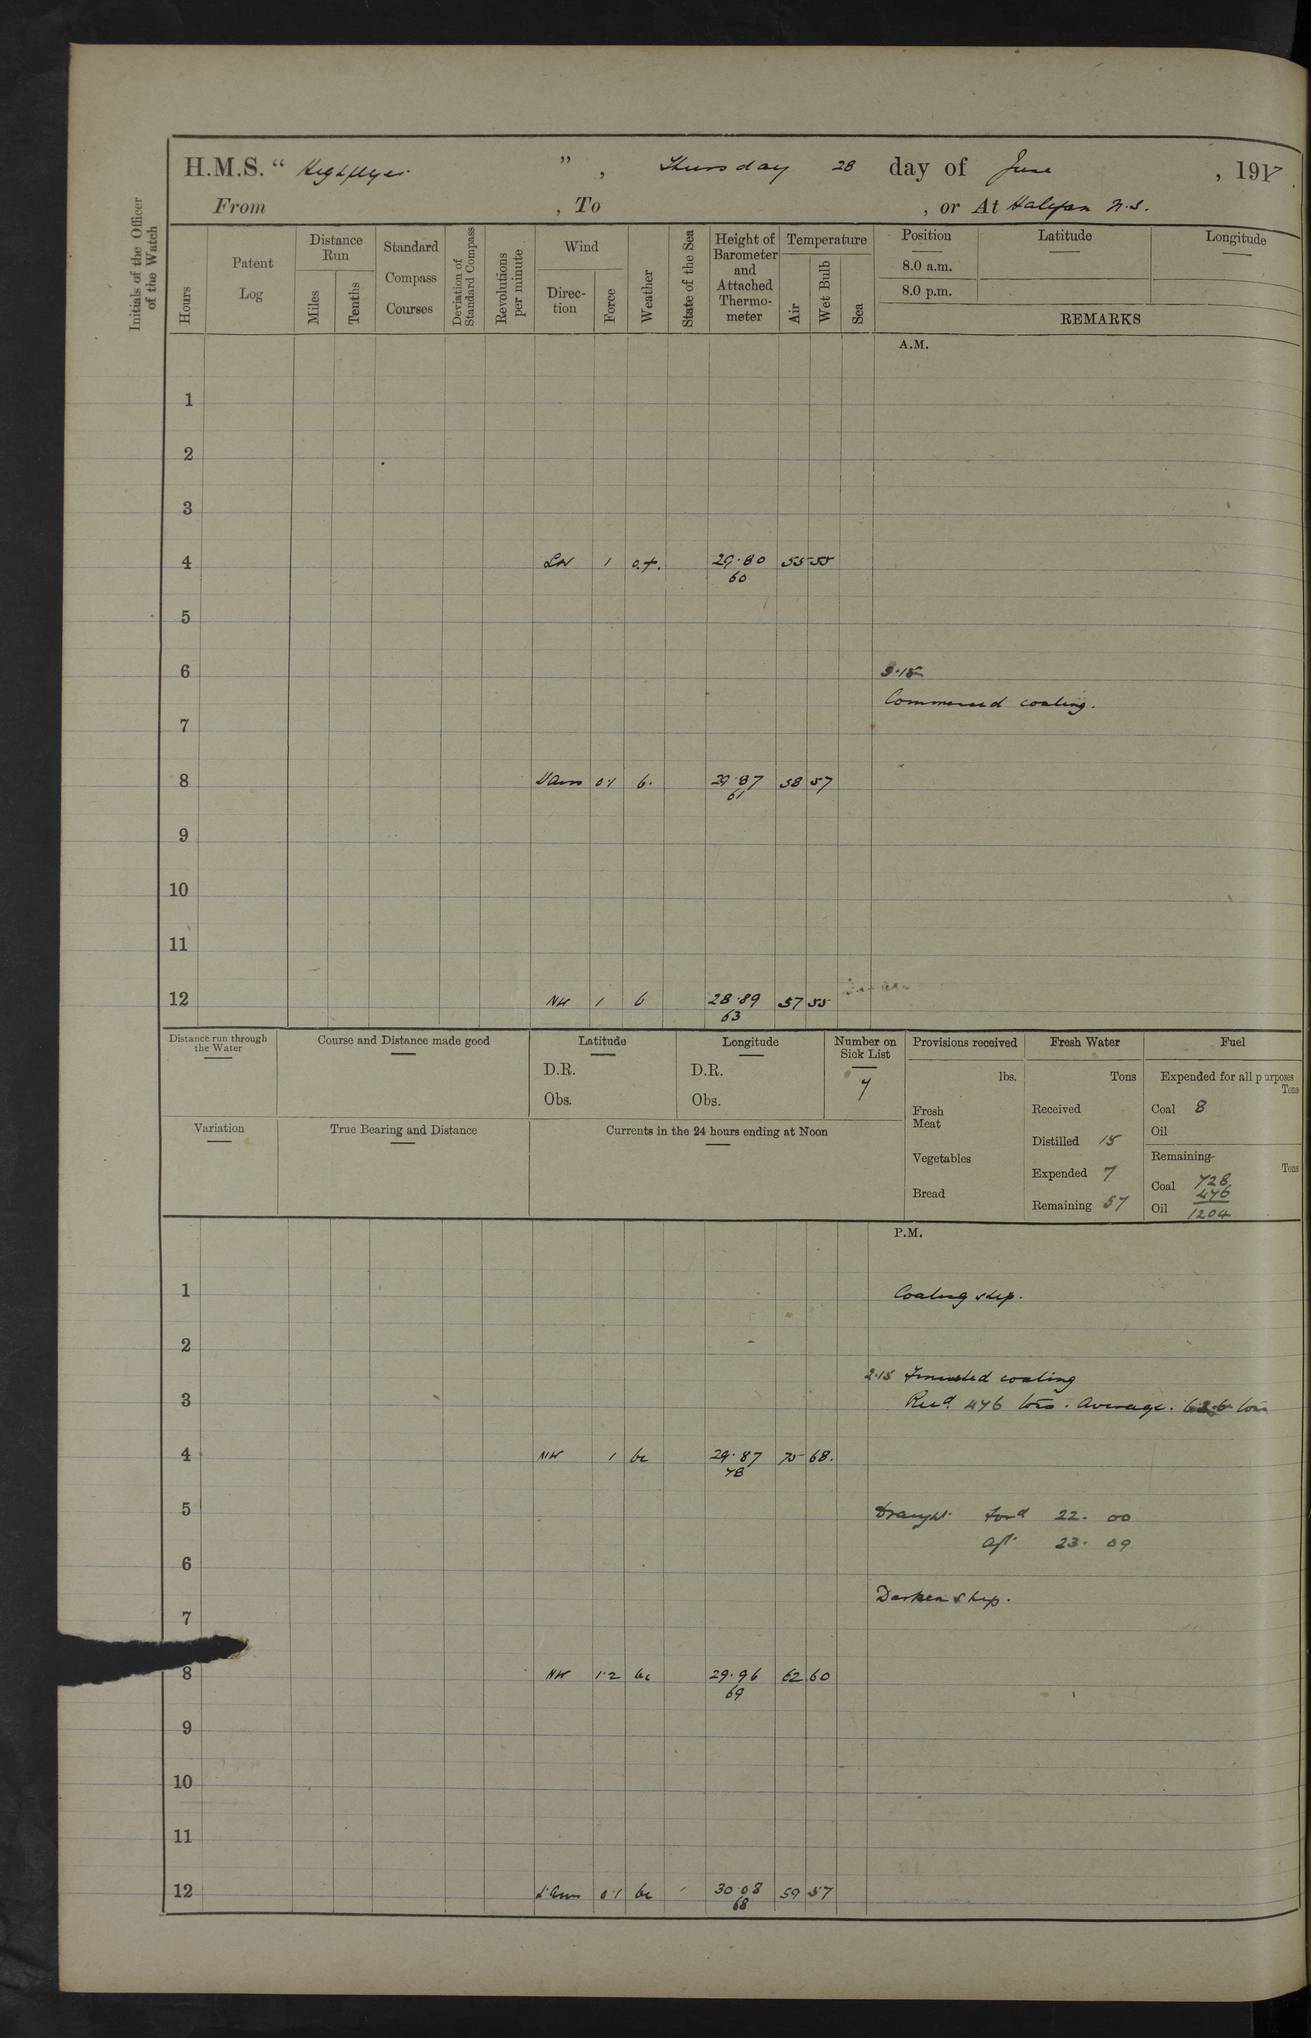 H.M.S. “ Highflyer ”, Thursday 28 day of June , 1917.
From , To , or At Halifax N.S.
Initials of the Officer of the Watch
Hours
Patent Log
Distance Run
Miles
Tenths
Standard Compass Courses
Deviation of Standard Compass
Revolutions per minute
Wind
Direc- tion
Force
Weather
State of the Sea
Height of Barometer and Attached Thermo- meter
Temperature
Air
Wet Bulb
Sea
Position Latitude Longitude
8.0 a.m.
8.0 p.m.
REMARKS
A.M.
1
2
3
4 1 29.80 55 55
60
5
6 5.15
Commenced coaling.
7
8 0.1 b. 29.87 58 57
61
9
10
11
12 NW 1 b 28.89 57 55
63
Distance run through the Water
Course and Distance made good
Latitude
D.R.
Obs.
Longitude
D.R.
Obs.
Number on Sick List
7
Provisions received
lbs.
Fresh Meat
Vegetables
Bread
Fresh Water
Tons
Received
Distilled 15
Expended 7
Remaining 57
Fuel
Expended for all purposes
Tons
Coal 8
Oil
Remaining
Tons
Coal 728
476
Oil 1204
Variation
True Bearing and Distance
Currents in the 24 hours ending at Noon
P.M.
1 Coaling ship.
2
2.15 Finished coaling
3 Recd. 476 tons. Average. tons
4 NW 1 bc 29.87 70 68.
78
5 Draught ford 22. 00
aft. 23. 09
6
Darken ship.
7
8 NW 1.2 bc 29.96 62 60
69
9
10
11
12 0.1 bc 30.08 59 57
68